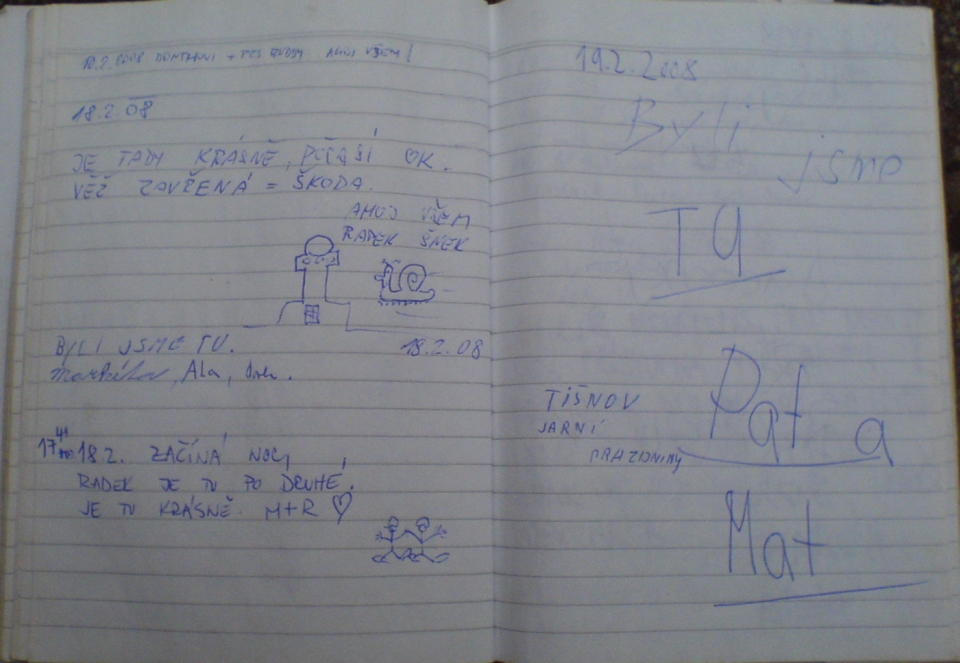 18.2.08
JE TADY KRÁSNĚ, POČASÍ OK.
VĚŽ ZAVŘENÁ = ŠKODA.
AHOJ VŠEM
RADEK ŠNEK
BYLI JSME TU. 18.2.08
Ala,
17 41 18.2. ZAČÍNÁ NOC,
RADEK JE TU PO DRUHÉ.
JE TU KRÁSNĚ. M+R
19.2.2008
Byli
jsme
TU
Pat a
Mat
TIŠNOV
JARNÍ
PRAZDNINY